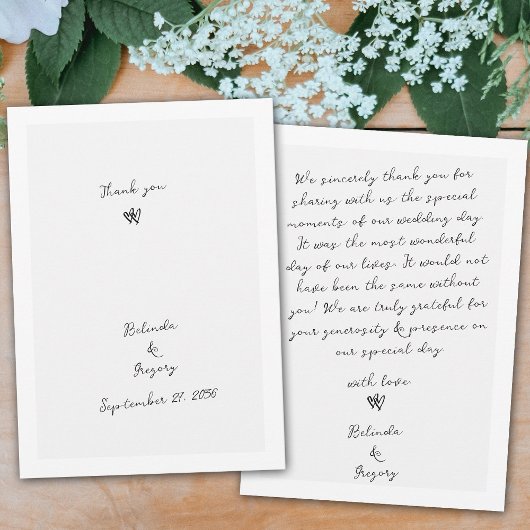 Thank you
Belinda
&
Gregory
September 27, 2056
We sincerely thank you for
sharing with us the special
moments of our wedding day.
It was the most wonderful
day of our lives. It would not
have been the same without
you! We are truly grateful for
your generosity & presence on
our special day.
with love
Belinda
&
Gregory